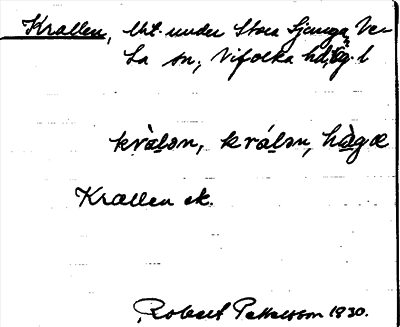 Krallen, Ut. under Stora Sjunga, Ve-
ta sn, Vifolka hd, Ög. l
kràlən, králən, hàgæ
Krallen ek.
Robert Pettersson 1930.